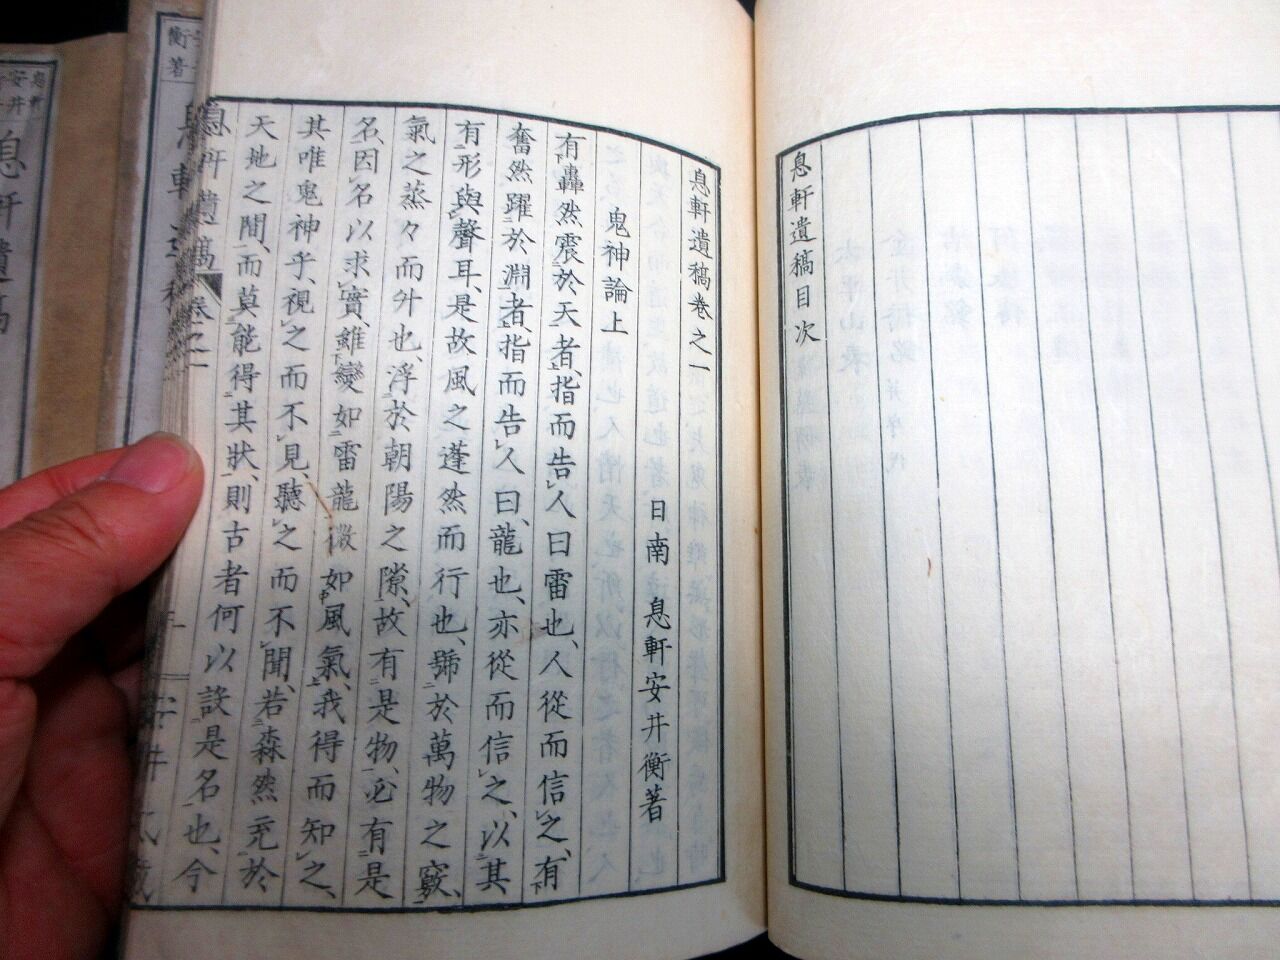 息軒遺稿目次
息軒遺稿卷之一
日南　息軒安井衡著
鬼神論上
有轟然震於天者、指而告人曰雷也、人從而信之、有
奮然躍於淵者、指而告人曰龍也、亦從而信之、以其
有形與聲耳、是故風之蓬然而行也、號於萬物之竅、
氣之蒸々而外也、浮於朝陽之隙、故有是物、必有是
名、因名以求實、雖變如雷龍微如風氣、我得而知之、
其唯鬼神乎、視之而不見、聽之而不聞、若森然充於
天地之間、而莫能得其狀、則古者何以設是名也、今
息軒遺稿
卷之一
衡著
息軒
安井
息軒遺稿